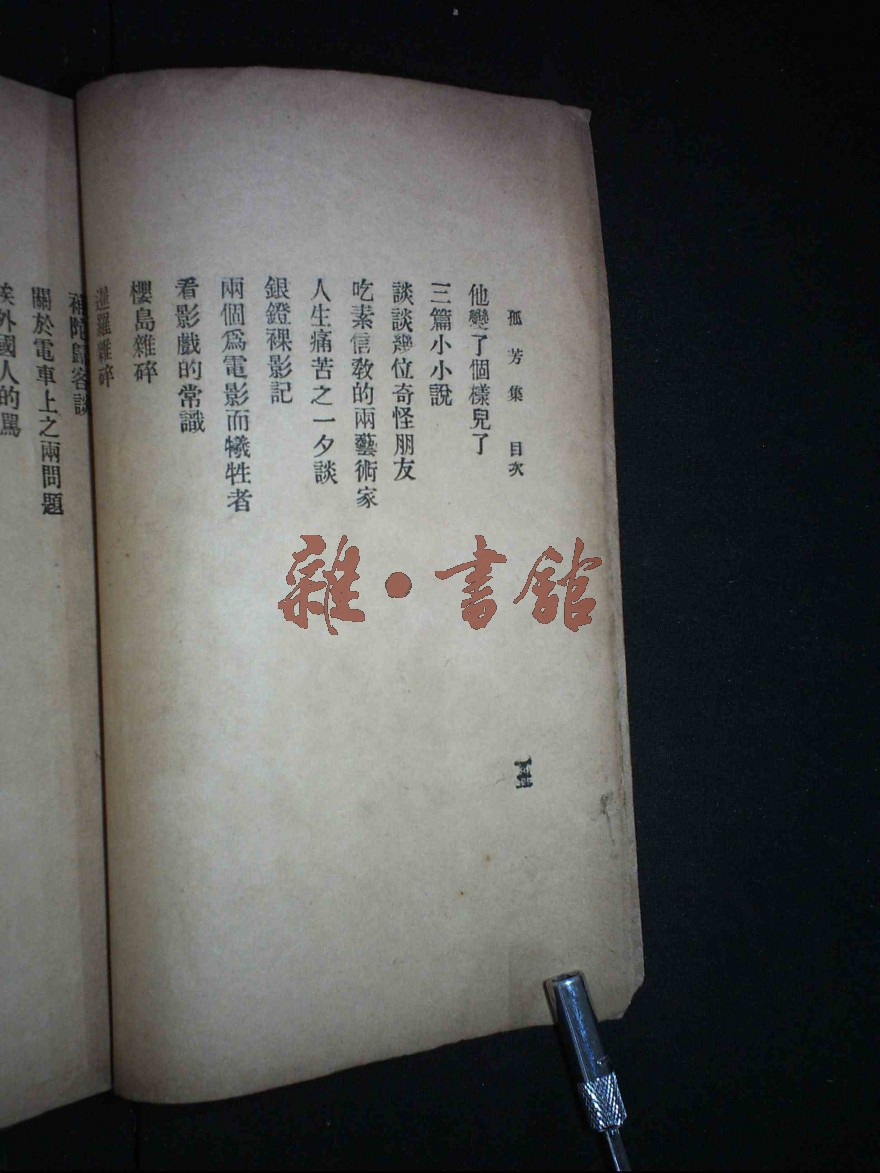 孤芳集 目次
他變了個樣兒了
三篇小小說
談談幾位奇怪朋友
吃素信教的兩藝術家
人生痛苦之一夕談
銀鐙裸影記
兩個爲電影而犧牲者
看影戲的常識
櫻島雜碎
暹羅雜碎
歸客談
關於電車上之兩問題
外國人的罵
雜·書館